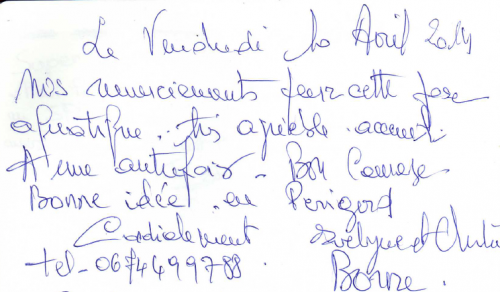 Le Vendredi 10 Avril 2014
Nos remerciements pour cette pose
apéritive.. très agréable accueil.
A une autrefois - Bon Courage
Bonne idée en Périgord
Cordialement Evelyne et
tel - 0674499788. Bonne.